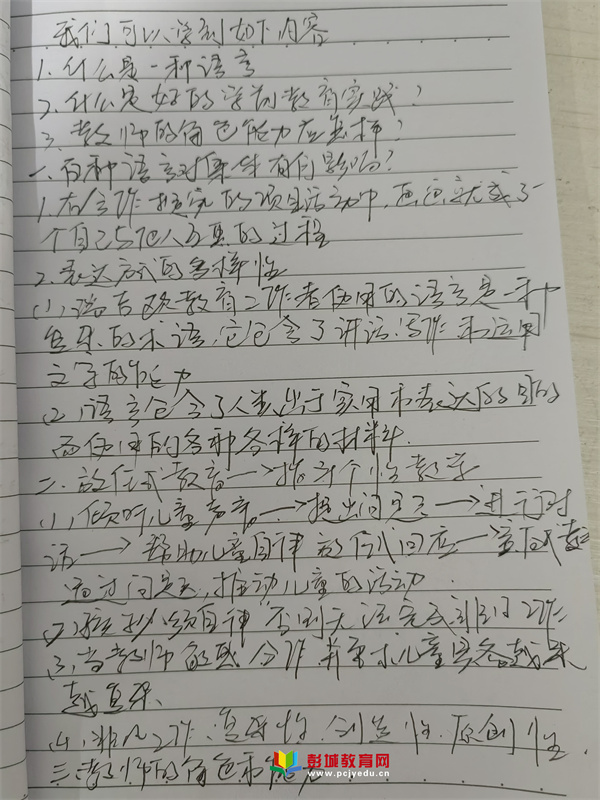 我们可以学到如下内容
1.什么是一种语言
2.什么是好的学前教育实践?
3.教师的角色能力应怎样?
一.百种语言对集体有何影响?
1.在合作探究的项目活动中,画画就成了一
个自己与他人互惠的过程
2.表达方式的多样性
(1)瑞吉欧教育工作者使用的语言是一种
复杂的术语,它包含了讲话.写作和运用
文字的能力
(2)语言包含了人类出于实用和表达的目的
而使用的各种各样的材料.
二.放任式教育→推动个性教学
(1)倾听儿童声音→提出问题→进行对
话→帮助儿童自律 回应→
通过问题,推动儿童的活动.
(2)必须自律 否则无法完成 工作
(3)当教师 合作 并 儿童 越来
越复杂.
(4) 工作.复杂性.创造性.原创性.
三.教师的角色和能力
彭城教育网
www.pcjyedu.cn